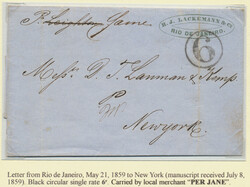 P. Leighton Jane
H. J. LACKEMANN & Co
RIO DE JANEIRO.
6
Messrs D. T. Lanman & Kemp
New york
Letter from Rio de Janeiro, May 21, 1859 to New York (manuscript received July 8,
1859). Black circular single rate 6'. Carried by local merchant "PER JANE".